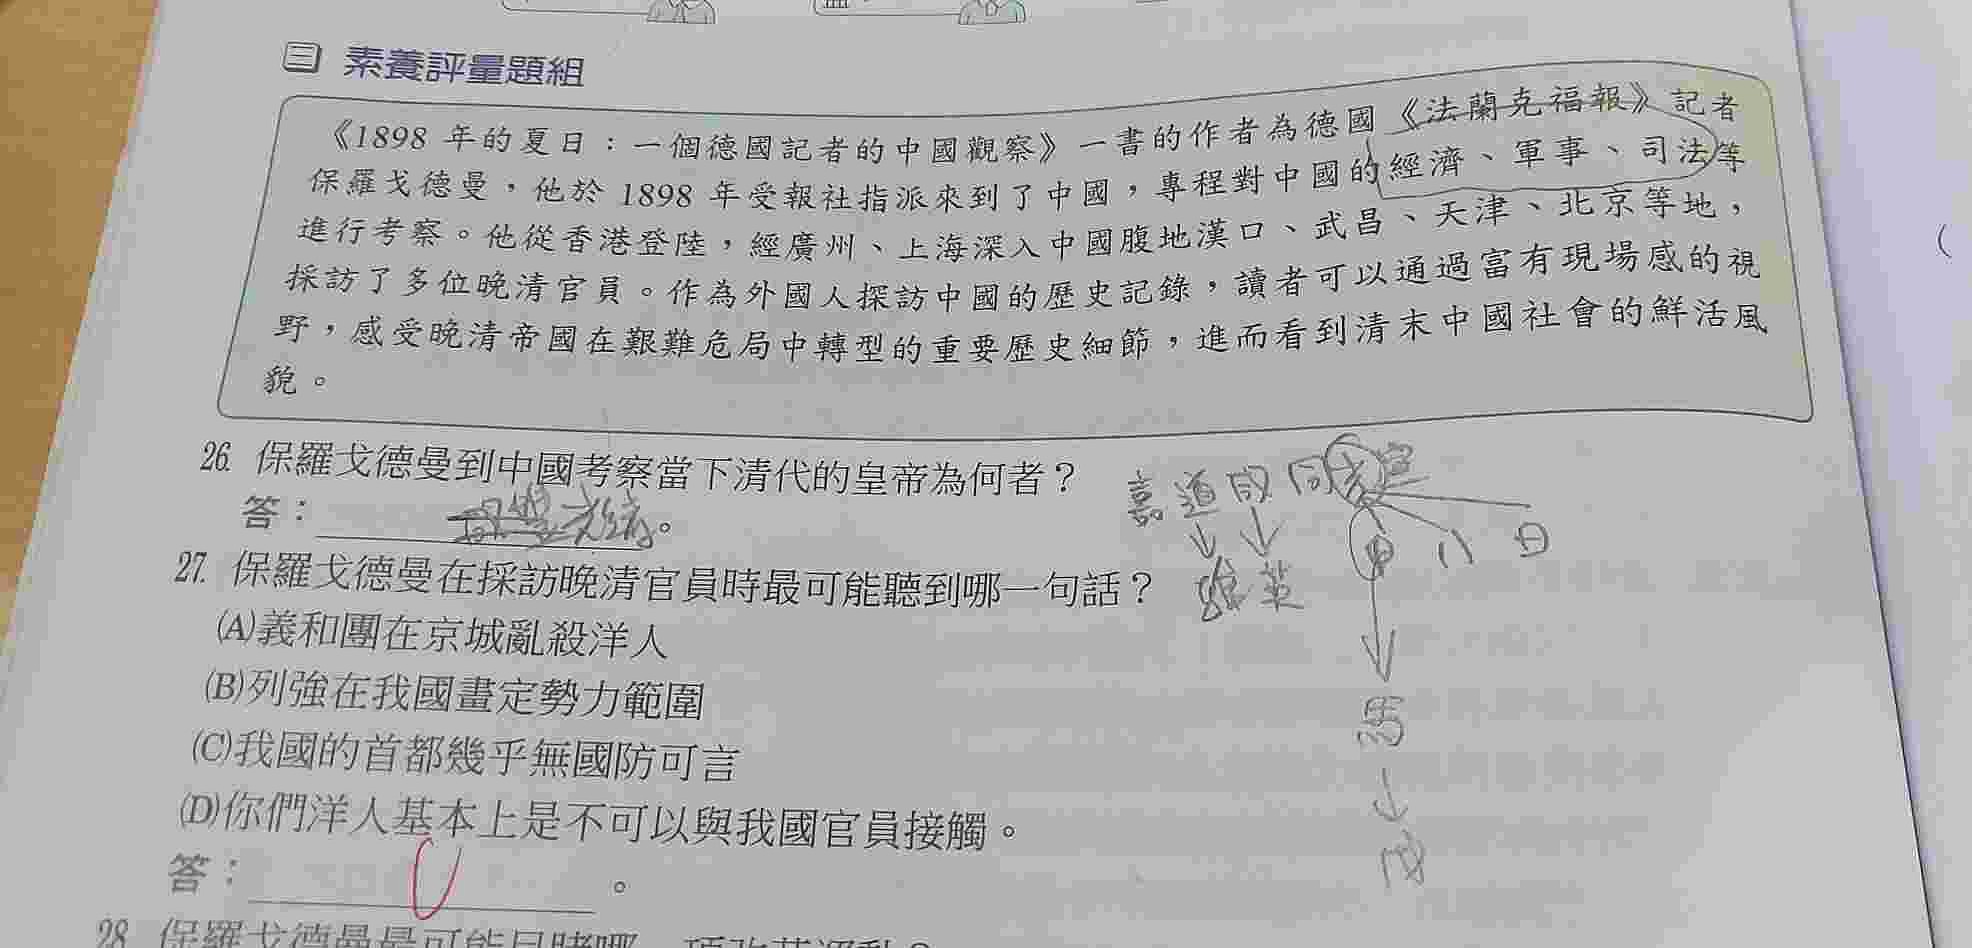 三 素養評量題組
《1898 年的夏日：一個德國記者的中國觀察》一書的作者為德國《法蘭克福報》記者
保羅戈德曼，他於 1898 年受報社指派來到了中國，專程對中國的經濟、軍事、司法等
進行考察。他從香港登陸，經廣州、上海深入中國腹地漢口、武昌、天津、北京等地，
採訪了多位晚清官員。作為外國人探訪中國的歷史記錄，讀者可以通過富有現場感的視
野，感受晚清帝國在艱難危局中轉型的重要歷史細節，進而看到清末中國社會的鮮活風
貌。
26. 保羅戈德曼到中國考察當下清代的皇帝為何者？
嘉道咸同光宣
答：光緒。
甲 八 日
27. 保羅戈德曼在採訪晚清官員時最可能聽到哪一句話？
英
(A)義和團在京城亂殺洋人
(B)列強在我國畫定勢力範圍
馬
(C)我國的首都幾乎無國防可言
(D)你們洋人基本上是不可以與我國官員接觸。
答：。
28. 保羅戈德曼最可能目睹哪一項改革運動？